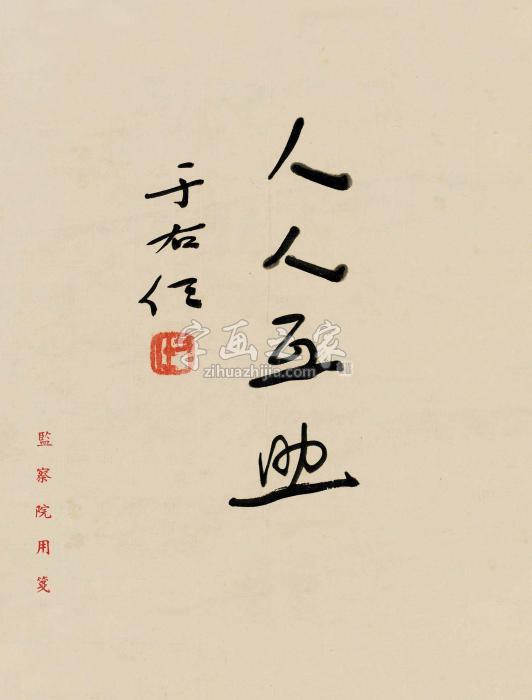 人人互助
于右任
監察院用箋
字画之家
zihuazhijia.com